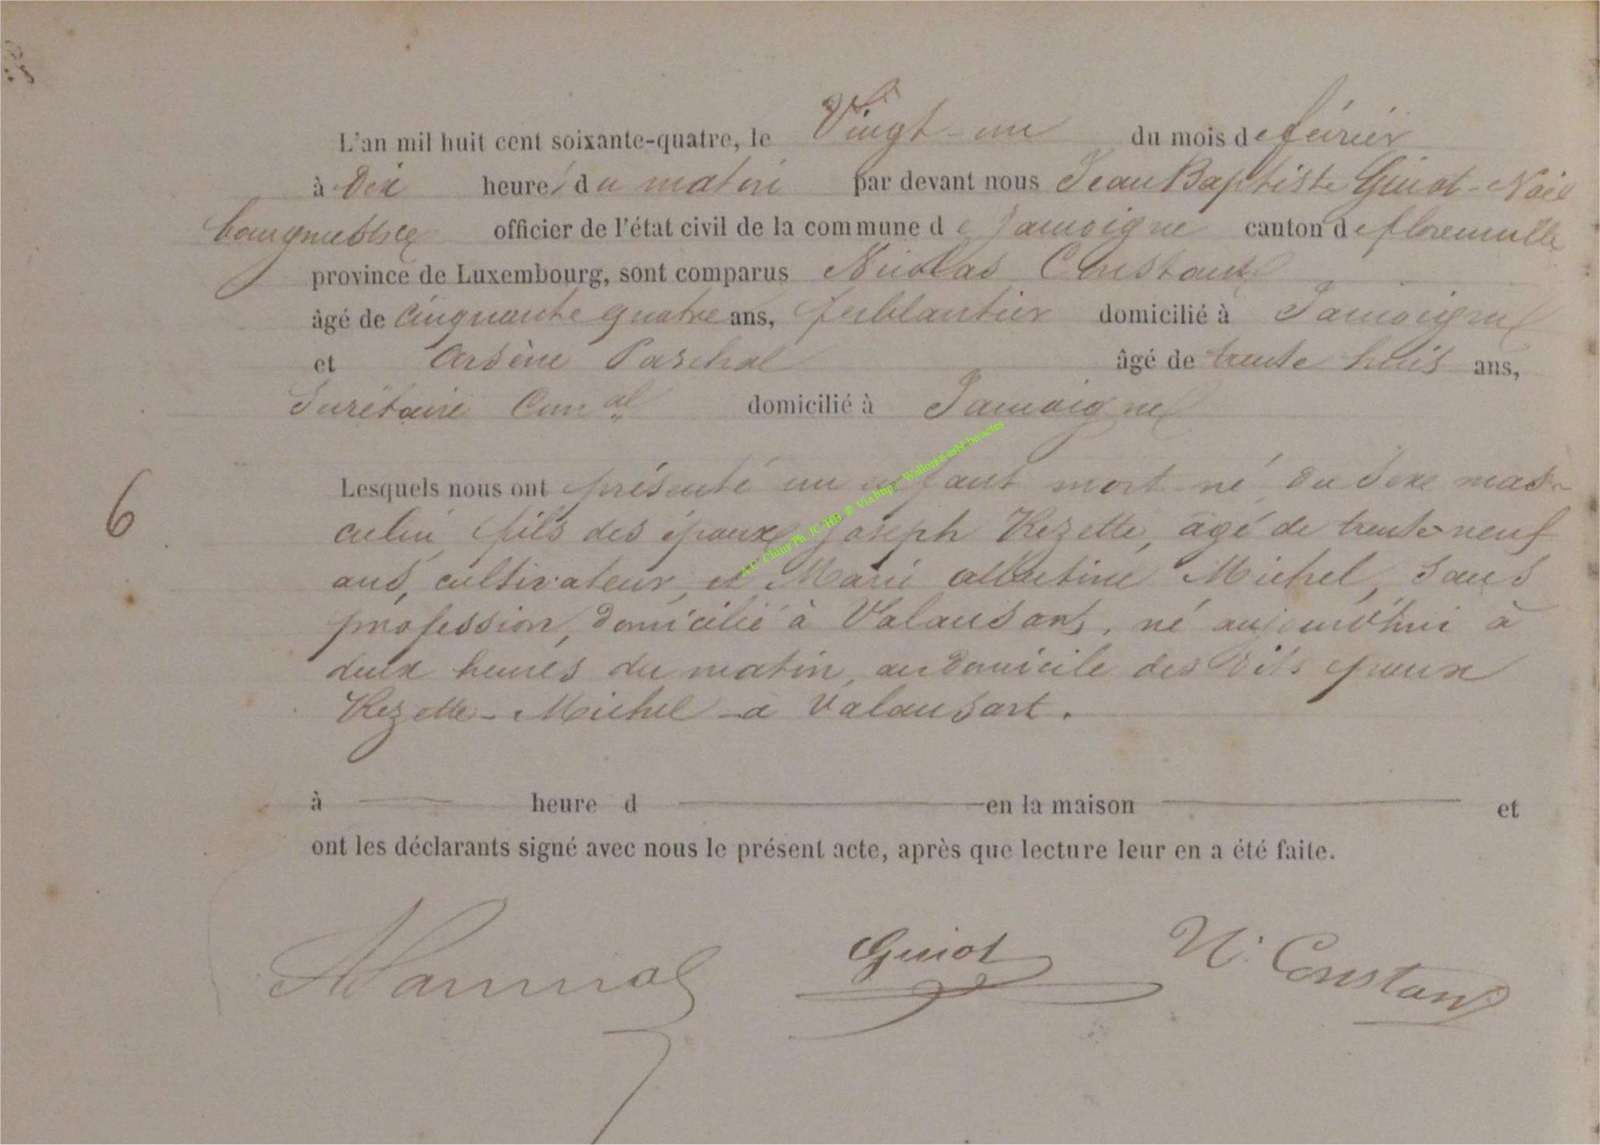 L'an mil huit cent soixante-quatre, le Vingt-un du mois de février
à Dix heures du matin par devant nous Jean Baptiste Guiot-Noël
bourgmestre officier de l'état civil de la commune de Jamoigne canton de florenville
province de Luxembourg, sont comparus Nicolas Constant
âgé de cinquante quatre ans, ferblantier domicilié à Jamoigne
et Arsène Paschal âgé de trente huit ans,
Secrétaire Com al domicilié à Jamoigne
6
Lesquels nous ont présenté un enfant mort né, du sexe mas-
culin, fils des époux Joseph Rezette, âgé de trente-neuf
ans, cultivateur, et Marie Albertine Michel, sans
profession, domicilié à Valansart, né aujourd'hui à
deux heures du matin, au domicile des dits époux
Rezette-Michel à Valansart.
à heure d en la maison et
ont les déclarants signé avec nous le présent acte, après que lecture leur en a été faite.
Guiot N. Constant